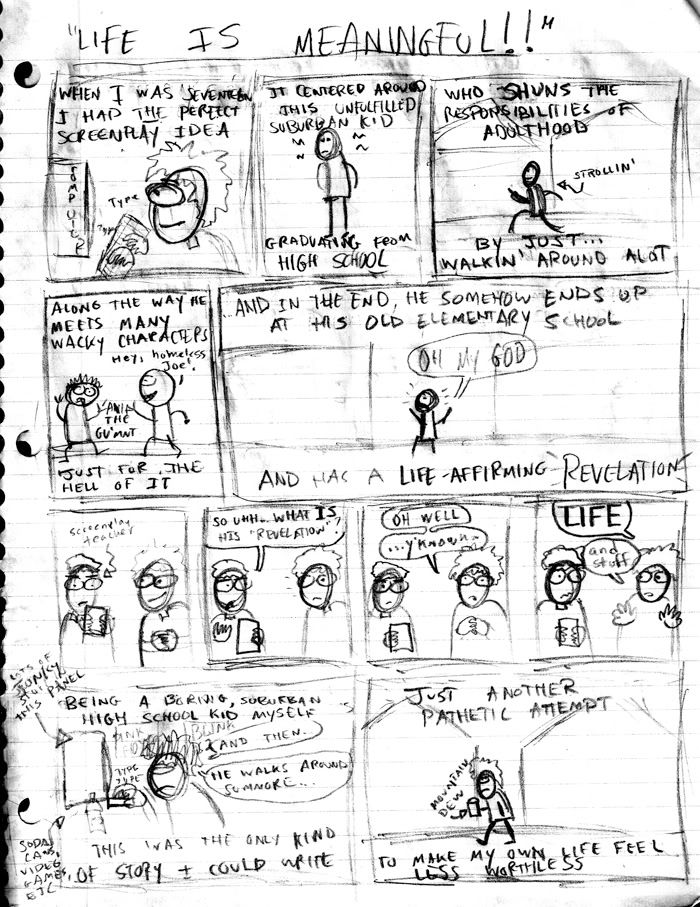 "LIFE IS MEANINGFUL!!"
WHEN I WAS SEVENTEEN
I HAD THE PERFECT
SCREENPLAY IDEA
COMPUTER
TYPE
TYPE
IT CENTERED AROUND
THIS UNFULFILLED
SUBURBAN KID
GRADUATING FROM
HIGH SCHOOL
WHO SHUNS THE
RESPONSIBILITIES OF
ADULTHOOD
STROLLIN'
BY JUST...
WALKIN' AROUND ALOT
ALONG THE WAY HE
MEETS MANY
WACKY CHARACTERS
Hey, homeless
Joe!
THE
GU'MNT
JUST FOR THE
HELL OF IT
...AND IN THE END, HE SOMEHOW ENDS UP
AT HIS OLD ELEMENTARY SCHOOL
OH MY GOD
AND HAS A LIFE-AFFIRMING REVELATION
screenplay
teacher
SO UHH...WHAT IS
HIS "REVELATION"?
OH WELL
...Y'KNOW..
LIFE
and
stuff
LOTS OF
JUNKY
STUFF
THIS PANEL
BEING A BORING, SUBURBAN
HIGH SCHOOL KID MYSELF
BLINK
AND THEN..
TYPE
TYPE
HE WALKS AROUND
SUMMORE...
SODA
CANS,
VIDEO
GAMES,
ETC
THIS WAS THE ONLY KIND
OF STORY I COULD WRITE
JUST ANOTHER
PATHETIC ATTEMPT
MOUNTAIN
DEW
TO MAKE MY OWN LIFE FEEL
LESS WORTHLESS